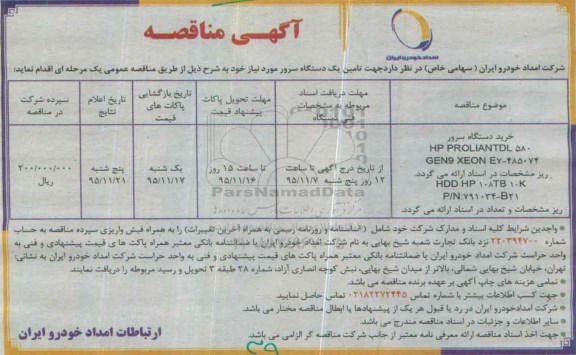 آگهی مناقصه
امداد خودرو ایران
شرکت امداد خودرو ایران ( سهامی خاص) در نظر دارد جهت تامین یک دستگاه سرور مورد نیاز خود به شرح ذیل از طریق مناقصه عمومی یک مرحله ای اقدام نماید:
موضوع مناقصه
مهلت دریافت اسناد مربوطه به مشخصات فنی دستگاه
مهلت تحویل پاکات پیشنهاد قیمت
تاریخ بازگشایی پاکات های قیمت
تاریخ اعلام نتایج
سپرده شرکت در مناقصه
خرید دستگاه سرور
HP PROLIANTDL ۵۸۰
GEN9 XEON E۷-۴۸۵۰۷۴
ریز مشخصات در اسناد ارائه می گردد.
HDD HP ۱۰۸TB ۱۰K
P/N:۷۹۱۰۳۴-B۲۱
ریز مشخصات و تعداد در اسناد ارائه می گردد.
از تاریخ درج آگهی تا ساعت
۱۲ روز پنج شنبه ۹۵/۱۱/۷
تا ساعت ۱۵ روز
۹۵/۱۱/۱۶
یک شنبه
۹۵/۱۱/۱۷
پنج شنبه
۹۵/۱۱/۲۱
۲۰۰/۰۰۰/۰۰۰
ریال
ParsNamadData
واجدین شرایط کلیه اسناد و مدارک شرکت خود شامل ( اساسنامه و روزنامه رسمی به همراه آخرین تغییرات) را به همراه فیش واریزی سپرده مناقصه به حساب
شماره ۲۲۰۳۹۴۷۰۰ نزد بانک تجارت شعبه شیخ بهایی به نام شرکت امداد خودرو ایران یا ضمانتنامه بانکی معتبر همراه پاکت ها ی قیمت پیشنهادی و فنی به
واحد حراست شرکت امداد خودرو ایران یا ضمانتنامه بانکی معتبر همراه پاکت های قیمت پیشنهادی و فنی به واحد حراست شرکت امداد خودرو ایران به نشانی:
تهران، خیابان شیخ بهایی شمالی، بالاتر از میدان شیخ بهایی، نبش کوچه انصاری آزاد، شماره ۲۸ طبقه ۳ تحویل و رسید مربوطه را دریافت نمایند.
تمامی هزینه های چاپ آگهی بر عهده برنده مناقصه می باشد.
جهت کسب اطلاعات بیشتر با شماره تماس ۰۲۱۸۲۲۷۲۴۴۵ تماس حاصل نمایید.
شرکت امدادخودرو ایران در رد یا قبول هر یک از پیشنهادها یا ابطال مناقصه مختار می باشد.
سایر اطلاعات و جزئیات در اسناد مناقصه مندرج می باشد.
جهت اخذ اسناد مناقصه ارائه معرفی نامه معتبر از جانب شرکت مناقصه گر الزامی می باشد.
ارتباطات امداد خودرو ایران